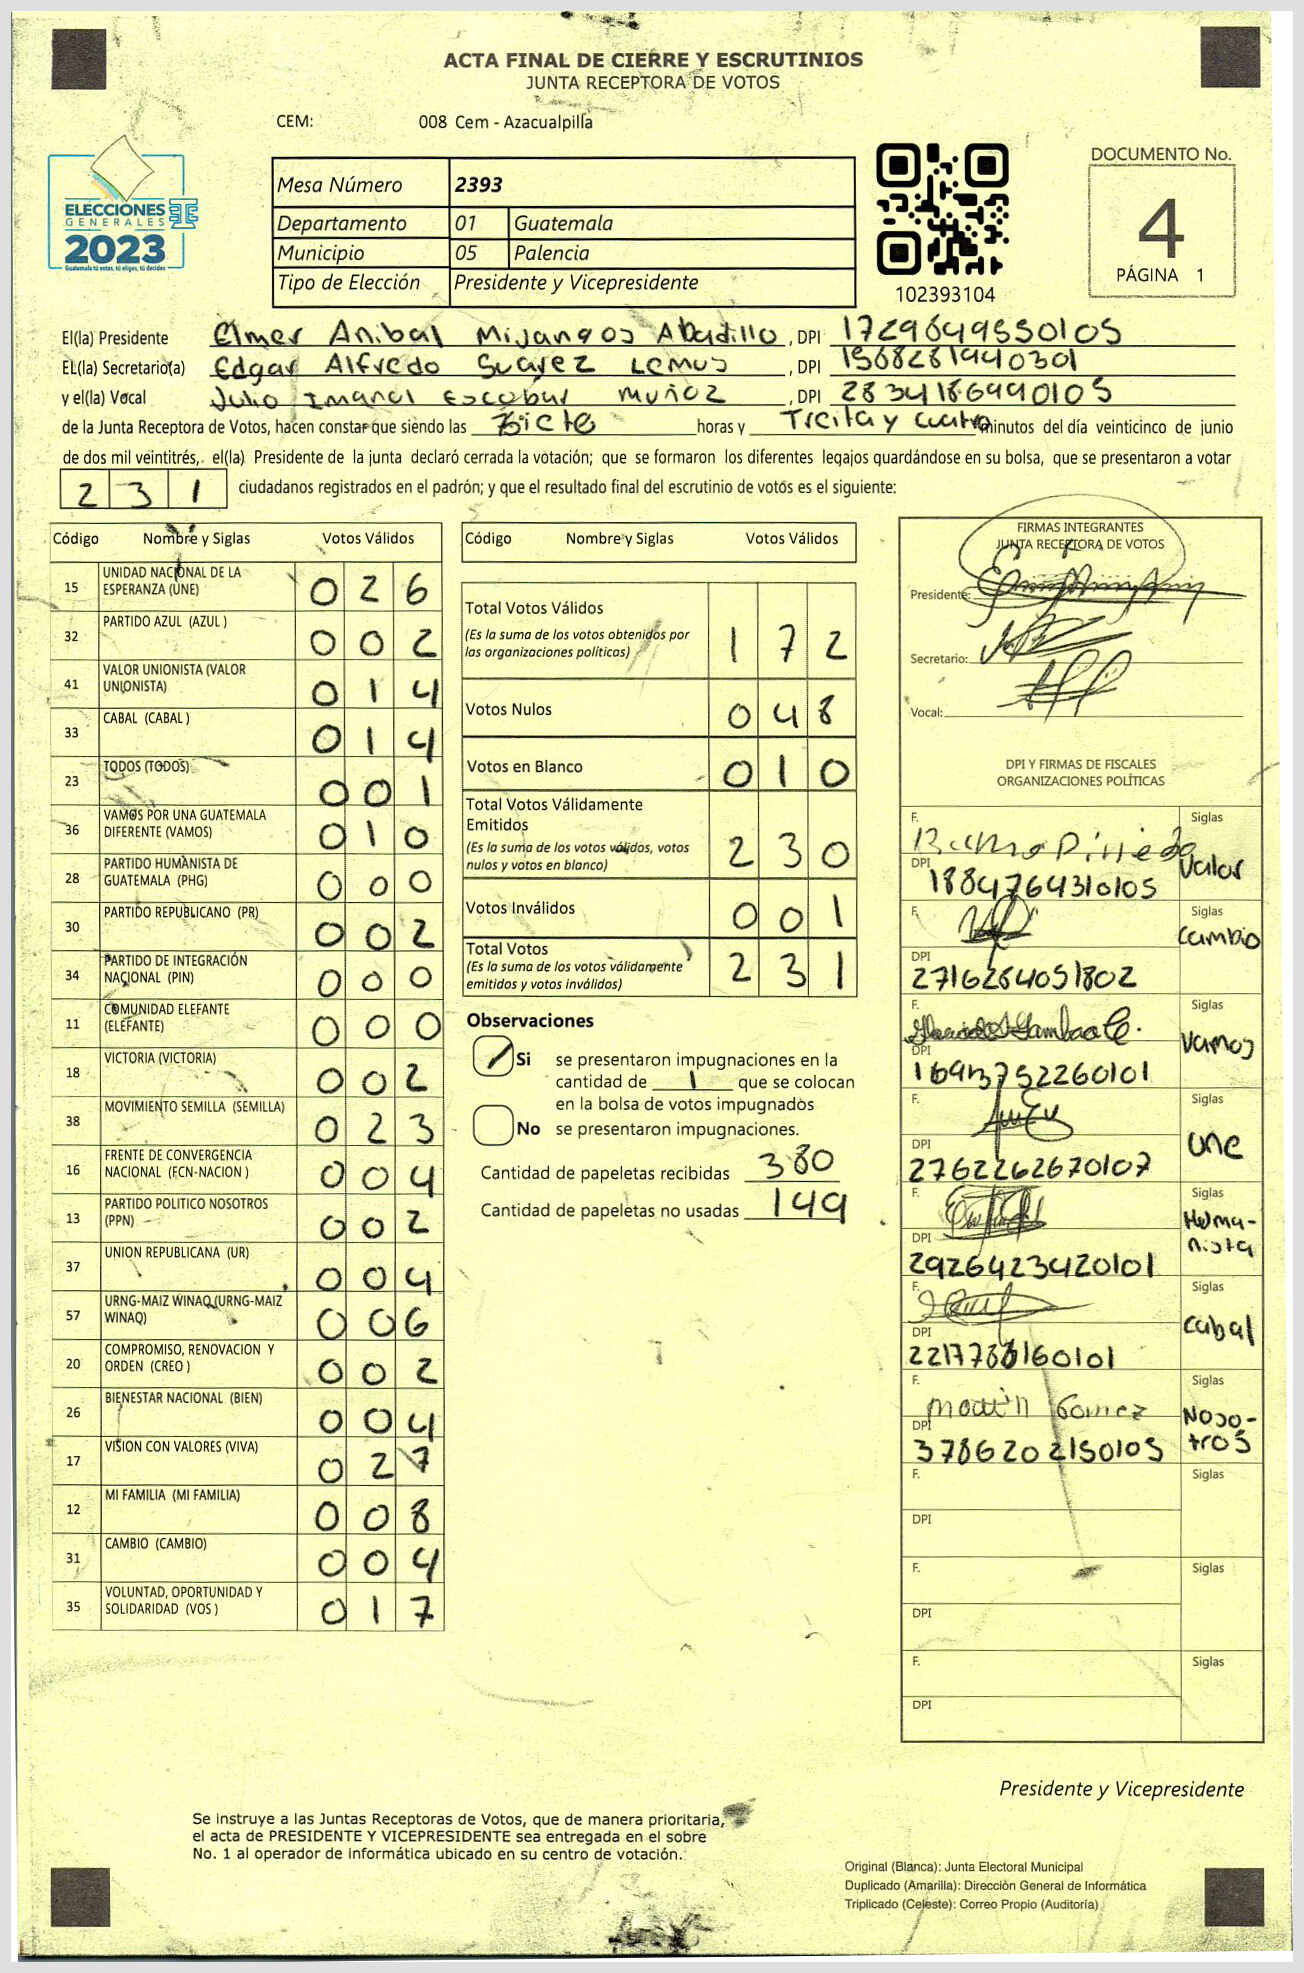 ACTA FINAL DE CIERRE Y ESCRUTINIOS
JUNTA RECEPTORA DE VOTOS
CEM: 008 Cem - Azacualpilla
ELECCIONES
GENERALES
2023
Guatemala tú votas, tú eliges, tú decides
Mesa Número 2393
Departamento 01 Guatemala
Municipio 05 Palencia
Tipo de Elección Presidente y Vicepresidente
102393104
DOCUMENTO No.
4
PÁGINA 1
El(la) Presidente Elmer Anibal Mijangos Abadillo, DPI 1729649550105
EL(la) Secretario(a) Edgar Alfredo Suarez Lemus, DPI 1568261940301
y el(la) Vocal Julio Imanol Escobar Muñoz, DPI 2834186990105
de la Junta Receptora de Votos, hacen constar que siendo las Siete horas y Treita y cuatro minutos del día veinticinco de junio
de dos mil veintitrés, el(la) Presidente de la junta declaró cerrada la votación; que se formaron los diferentes legajos guardándose en su bolsa, que se presentaron a votar
231 ciudadanos registrados en el padrón; y que el resultado final del escrutinio de votos es el siguiente:
Código Nombre y Siglas Votos Válidos
15 UNIDAD NACIONAL DE LA
ESPERANZA (UNE) 026
32 PARTIDO AZUL (AZUL ) 002
41 VALOR UNIONISTA (VALOR
UNIONISTA) 014
33 CABAL (CABAL ) 014
23 TODOS (TODOS) 001
36 VAMOS POR UNA GUATEMALA
DIFERENTE (VAMOS) 010
28 PARTIDO HUMANISTA DE
GUATEMALA (PHG) 000
30 PARTIDO REPUBLICANO (PR) 002
34 PARTIDO DE INTEGRACIÓN
NACIONAL (PIN) 000
11 COMUNIDAD ELEFANTE
(ELEFANTE) 000
18 VICTORIA (VICTORIA) 002
38 MOVIMIENTO SEMILLA (SEMILLA) 023
16 FRENTE DE CONVERGENCIA
NACIONAL (FCN-NACION ) 004
13 PARTIDO POLITICO NOSOTROS
(PPN) 002
37 UNION REPUBLICANA (UR) 004
57 URNG-MAIZ WINAQ (URNG-MAIZ
WINAQ) 006
20 COMPROMISO, RENOVACION Y
ORDEN (CREO ) 002
26 BIENESTAR NACIONAL (BIEN) 004
17 VISION CON VALORES (VIVA) 027
12 MI FAMILIA (MI FAMILIA) 008
31 CAMBIO (CAMBIO) 004
35 VOLUNTAD, OPORTUNIDAD Y
SOLIDARIDAD (VOS ) 017
Código Nombre y Siglas Votos Válidos
Total Votos Válidos 172
(Es la suma de los votos obtenidos por
las organizaciones políticas)
Votos Nulos 048
Votos en Blanco 010
Total Votos Válidamente
Emitidos 230
(Es la suma de los votos válidos, votos
nulos y votos en blanco)
Votos Inválidos 001
Total Votos 231
(Es la suma de los votos válidamente
emitidos y votos inválidos)
Observaciones
Si se presentaron impugnaciones en la
cantidad de 1 que se colocan
en la bolsa de votos impugnados
No se presentaron impugnaciones.
Cantidad de papeletas recibidas 380
Cantidad de papeletas no usadas 149
FIRMAS INTEGRANTES
JUNTA RECEPTORA DE VOTOS
Presidente:
Secretario:
Vocal:
DPI Y FIRMAS DE FISCALES
ORGANIZACIONES POLÍTICAS
F. Siglas
Valor
DPI 1884764310105
F. Siglas
Cambio
DPI 2716264051802
F. Siglas
Vamos
DPI
F. Siglas
une
DPI 2762262670107
F. Siglas
DPI 2926423420101
F. Siglas
Cabal
DPI
F. Siglas
Gomez Noso-
tros
DPI 3786202150105
F. Siglas
DPI
F. Siglas
DPI
F. Siglas
DPI
Presidente y Vicepresidente
Se instruye a las Juntas Receptoras de Votos, que de manera prioritaria,
el acta de PRESIDENTE Y VICEPRESIDENTE sea entregada en el sobre
No. 1 al operador de informática ubicado en su centro de votación.
Original (Blanca): Junta Electoral Municipal
Duplicado (Amarilla): Dirección General de Informática
Triplicado (Celeste): Correo Propio (Auditoría)